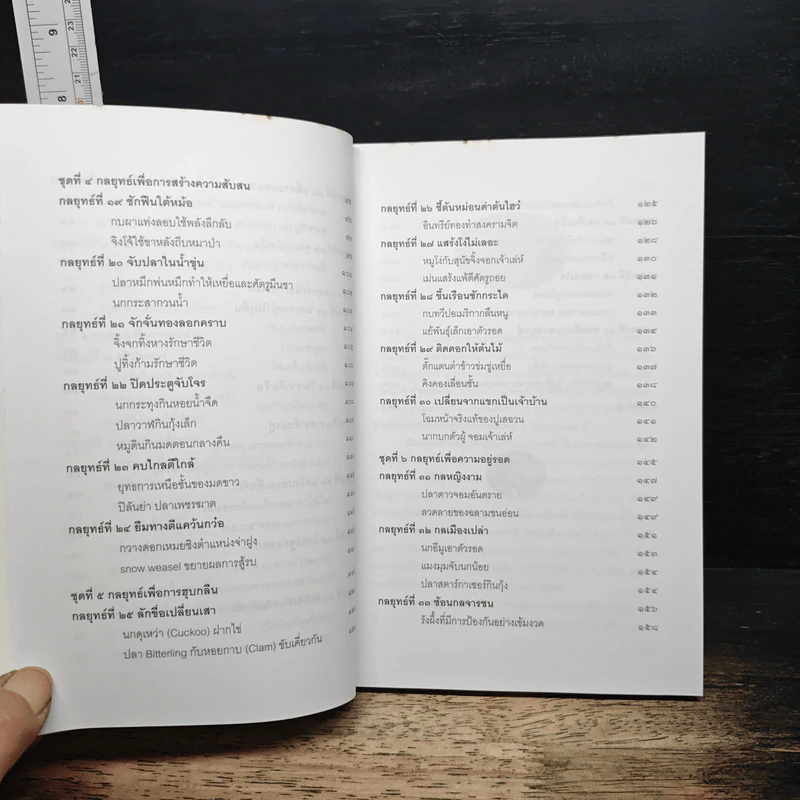 9
8
23
22
21
ชุดที่ ๔ กลยุทธ์เพื่อการสร้างความสับสน
กลยุทธ์ที่ ๑๙ ชักฟืนใต้หม้อ
กบผาแท่งลอบใช้พลังลึกลับ
จิงโจ้ใช้ขาหลังถีบหมาป่า
กลยุทธ์ที่ ๒๐ จับปลาในน้ำขุ่น
ปลาหมึกพ่นหมึกทำให้เหยื่อและศัตรูมึนชา
นกกระสากวนน้ำ
กลยุทธ์ที่ ๒๑ จักจั่นทองลอกคราบ
จิ้งจกทิ้งหางรักษาชีวิต
ปูทิ้งก้ามรักษาชีวิต
กลยุทธ์ที่ ๒๒ ปิดประตูจับโจร
นกกระทุงกินหอยน้ำจืด
ปลาวาฬกินกุ้งเล็ก
หมูดินกินมดตอนกลางคืน
กลยุทธ์ที่ ๒๓ คบไกลตีใกล้
ยุทธการเหนือชั้นของมดขาว
ปิลันย่า ปลาเพชรฆาต
กลยุทธ์ที่ ๒๔ ยืมทางตีแคว้นกว๋อ
กวางดอกเหมยชิงตำแหน่งจ่าฝูง
snow weasel ขยายผลการสู้รบ
ชุดที่ ๕ กลยุทธ์เพื่อการฮุบกลืน
กลยุทธ์ที่ ๒๕ ลักขื่อเปลี่ยนเสา
นกดุเหว่า (Cuckoo) ฝากไข่
ปลา Bitterling กับหอยกาบ (Clam) ขับเคี่ยวกัน
กลยุทธ์ที่ ๒๖ ชี้ต้นหม่อนด่าต้นไฮว๋ ๑๒๕
อินทรีย์ทองทำสงครามจิต ๑๒๖
กลยุทธ์ที่ ๒๗ แสร้งโง่ไม่เลอะ ๑๒๘
หมูโง่กับสุนัขจิ้งจอกเจ้าเล่ห์ ๑๓๐
เม่นแสร้งแพ้ตีศัตรูถอย ๑๓๑
กลยุทธ์ที่ ๒๘ ขึ้นเรือนชักกระได ๑๓๒
กบทวีปอเมริกากลืนหนู ๑๓๓
แย้พันธุ์เล็กเอาตัวรอด ๑๓๔
กลยุทธ์ที่ ๒๙ ติดดอกให้ต้นไม้ ๑๓๖
ตั๊กแตนตำข้าวข่มขู่เหยื่อ ๑๓๗
คิงคองเลื่อนชั้น ๑๓๘
กลยุทธ์ที่ ๓๐ เปลี่ยนจากแขกเป็นเจ้าบ้าน ๑๔๐
โฉมหน้าจริงแท้ของปูเสฉวน ๑๕๑
นากบกตัวผู้ จอมเจ้าเล่ห์ ๑๔๒
ชุดที่ ๖ กลยุทธ์เพื่อความอยู่รอด ๑๔๕
กลยุทธ์ที่ ๓๑ กลหญิงงาม ๑๔๗
ปลาดาวจอมอันตราย ๑๔๙
ลวดลายของฉลามขนอ่อน ๑๔๙
กลยุทธ์ที่ ๓๒ กลเมืองเปล่า ๑๕๑
นกอีมูเอาตัวรอด ๑๕๓
แมงมุมจับนกน้อย ๑๕๔
ปลาสตาร์กาเซอร์กินกุ้ง ๑๕๔
กลยุทธ์ที่ ๓๓ ซ้อนกลจารชน ๑๕๖
รังผึ้งที่มีการป้องกันอย่างเข้มงวด ๑๕๘